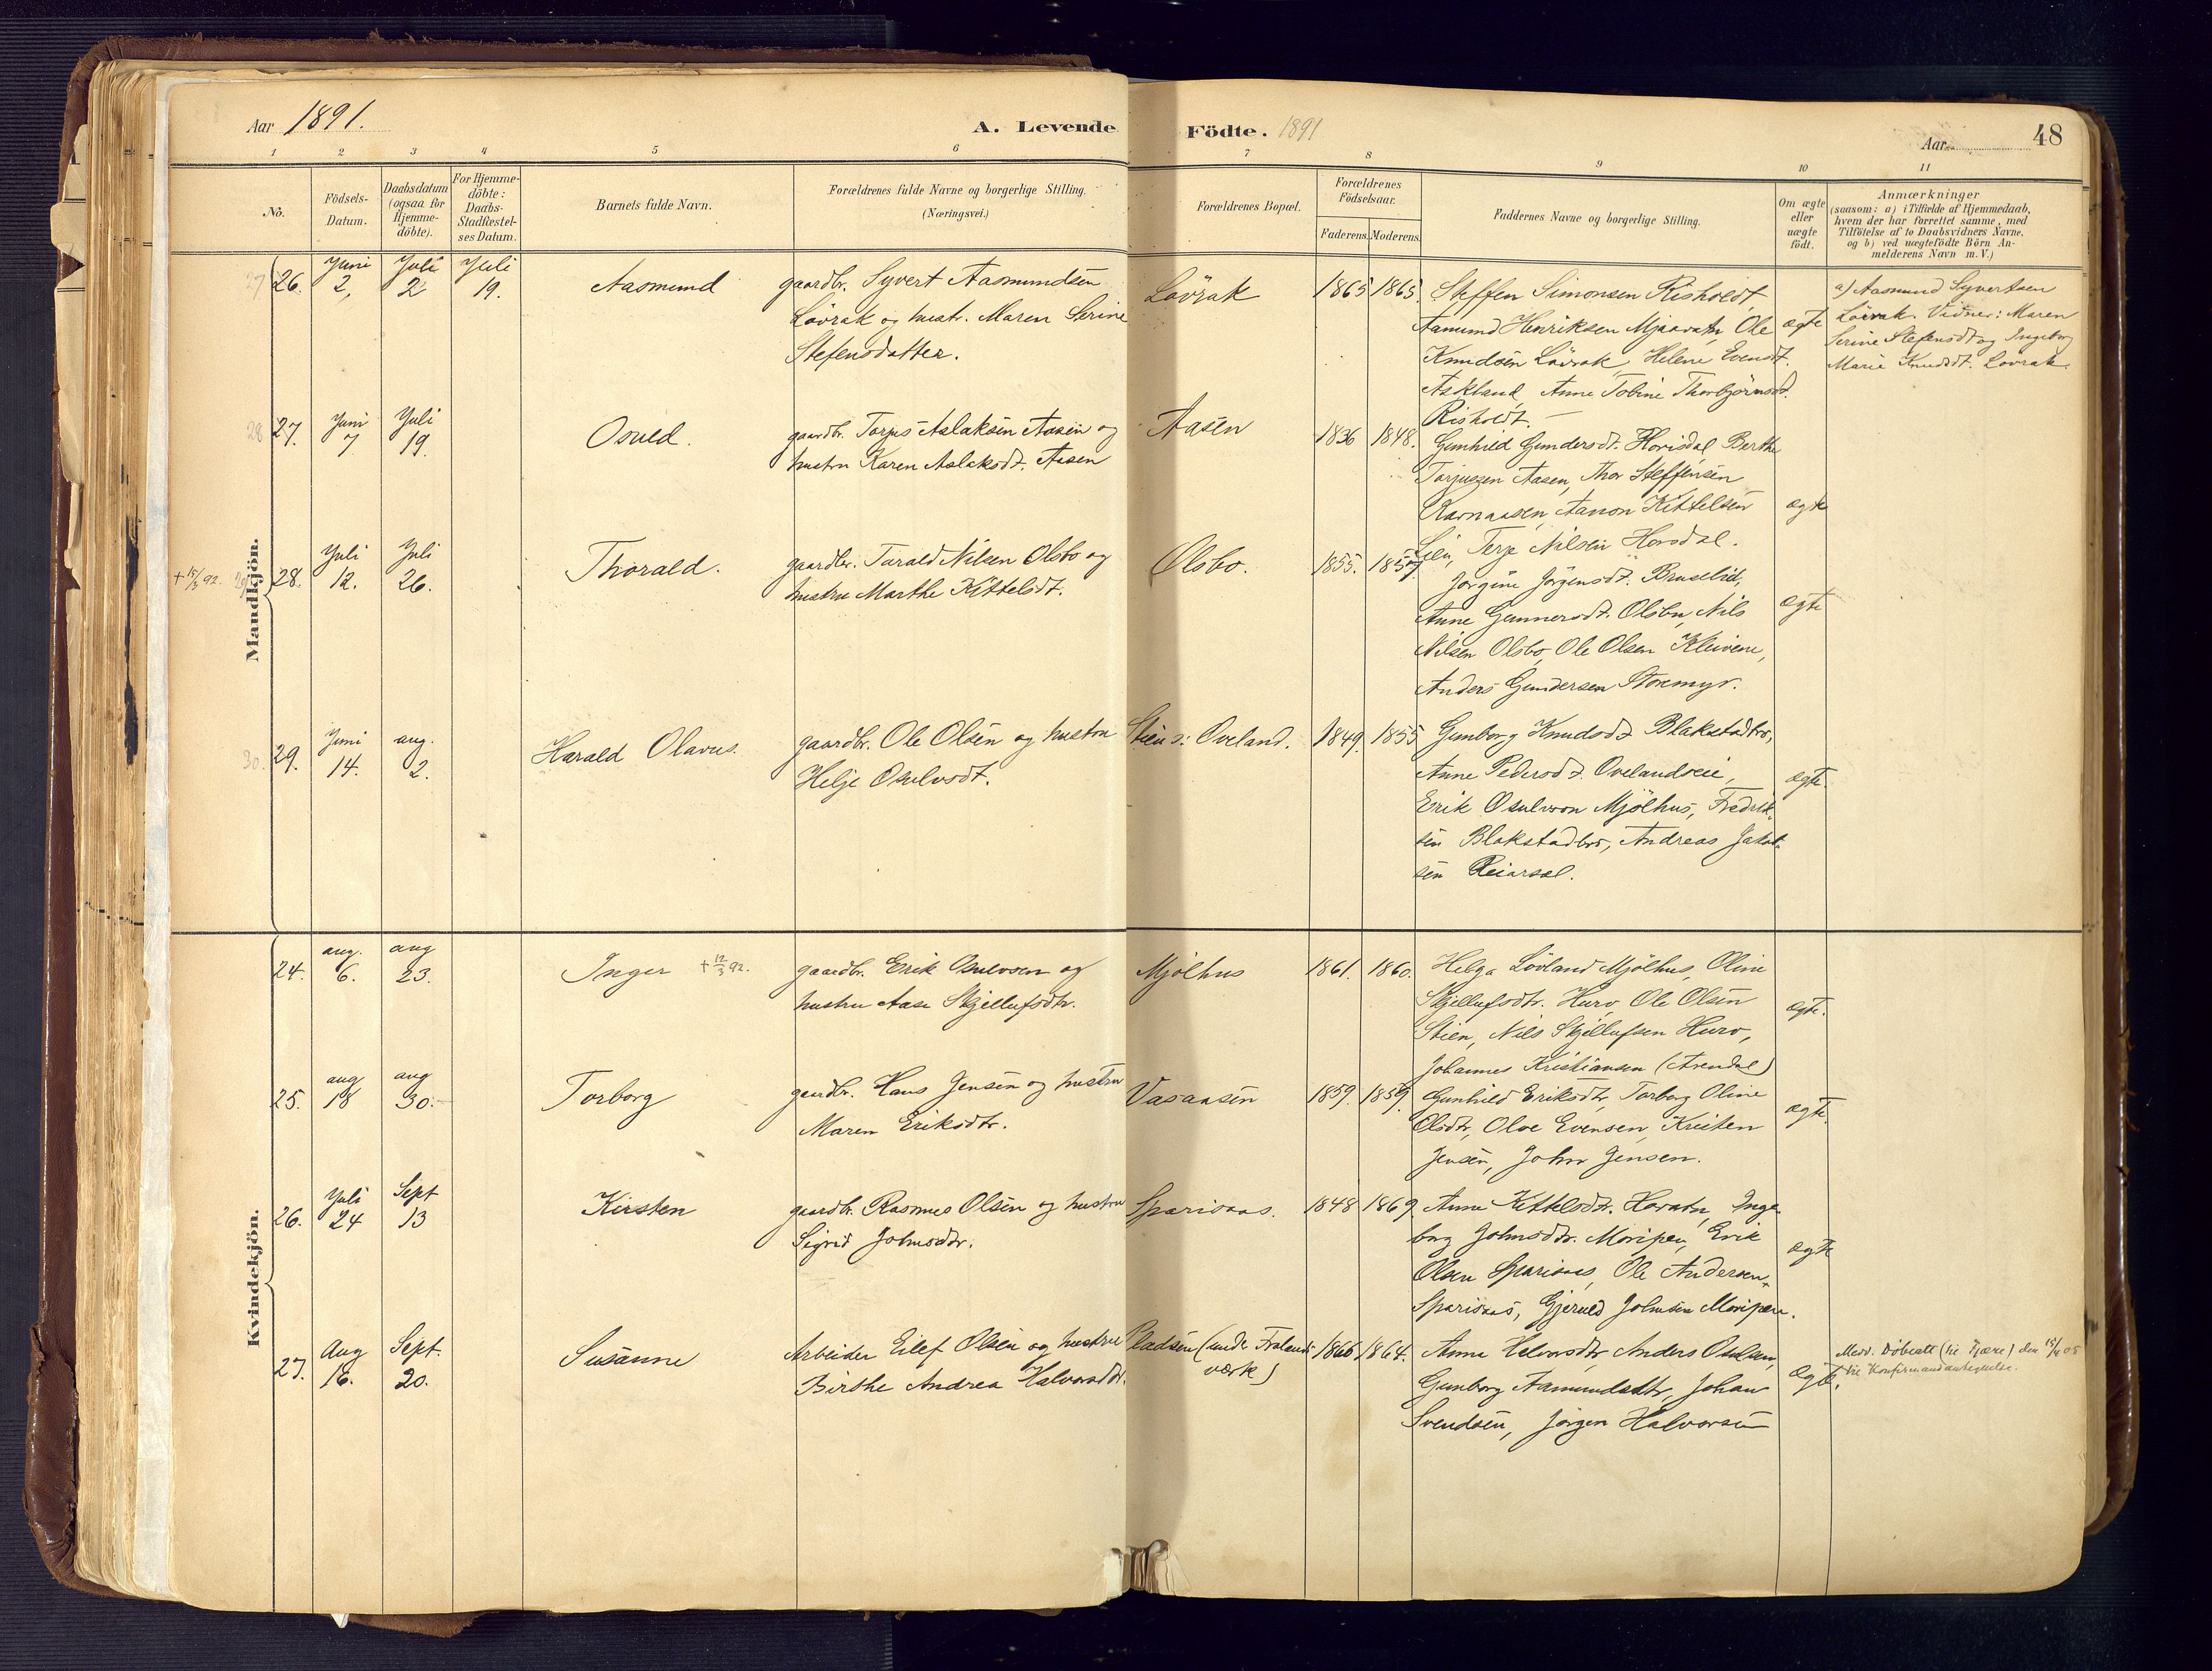 Aar 1891.
A. Levende Födte. 1891
Aar
48
1 2 3 4 5 6 7 8 9 10 11
No.
Födsels-
Datum.
Daabsdatum
(ogsaa for
Hjemme-
döbte).
For Hjemme-
döbte:
Daabs-
Stadfæstel-
ses Datum.
Barnets fulde Navn.
Forældrenes fulde Navne og borgerlige Stilling.
(Næringsvei.)
Forældrenes Bopæl.
Forældrenes
Födselsaar.
Faderens. Moderens.
Faddernes Navne og borgerlige Stilling.
Om ægte
eller
uægte
födt.
Anmærkninger
(saasom: a) i Tilfælde af Hjemmedaab,
hvem der har forrettet samme, med
Tilföielse af to Daabsvidners Navne,
og b) ved uægtefödte Börn An-
melderens Navn m. V.)
Mandkjön.
27 26.
Juni
2,
Juli
2
Juli
19.
Aasmund
gaardbr. Syvert Aasmundsen
Lövrak og hustr. Maren Serine
Stefensdatter.
Lövrak
1865 1865.
Steffen Simonsen Risholdt,
Aamund Henriksen Mjaavatn, Ole
Knudsen Lövrak, Helene Evensdt.
Askland, Anne Tobine Thorbjörnsd.
Risholdt.
ægte
a) Aasmund Syvertsen
Lövrak. Vidner: Maren
Serine Stefensdt og Ingeborg
Marie Knudsdt. Lovrak.
28 27.
Juni
7
Juli
19.
Osuld.
gaardbr. Torjus Aslaksen Aasen og
hustru Karen Aslaksdt. Aasen
Aasen
1836 1848.
Gunhild Gundersdt. Hovisdal Berthe
Torjussen Aasen, Thor Steffensen
Ravnaasen, Aanon Kittelsen
Lien, Terje Nilsen Hovsdal.
ægte
+ 15/3 92. 29 28.
Juli
12.
Juli
26.
Thorald.
gaardbr. Tarald Nilsen Olsbo og
hustru Marthe Kittelsdt.
Olsbo.
1855. 1857
Jörgine Jörgensdt. Bruselid,
Anne Gunnersdt. Olsbu, Nils
Nilsen Olsbo, Ole Olsen Kleivene,
Anders Gundersen Storemyr.
ægte
30. 29.
Juni
14.
aug.
2.
Harald Olavus.
gaardbr. Ole Olsen og hustru
Helje Osulvsdt.
Stien s: Oveland.
1849. 1855
Gunborg Knudsdt Blakstadbro,
Anne Pedersdt. Ovelandseie,
Erik Osulvson Mjölhus, Fredrik-
sen Blakstadbro, Andreas Jakob-
sen Reiarsal.
ægte.
Kvindekjön.
24.
aug.
6.
aug
23.
Inger + 12/3 92.
gaardbr. Erik Osulvsen og
hustru Aase Skjellufsdtr.
Mjölhus
1861. 1860.
Helga Lövland Mjölhus, Oline
Skjellufsdtr. Hurv, Ole Olsen
Stien, Nils Skjellufsen Hurv,
Johannes Kristiansen (Arendal)
ægte.
25.
aug
18
aug
30.
Torborg
gaardbr. Hans Jensen og hustru
Maren Eriksdtr.
Vasaasen
1859. 1859.
Gunhild Eriksdtr, Torborg Oline
Olsdtr, Olve Evensen, Kristen
Jensen, John Jensen.
ægte.
26.
Juli
24
Sept
13
Kirsten
gaardbr. Rasmus Olsen og hustru
Sigrid Johnsdtr.
Sparsaas.
1848 1869
Anne Kittelsdtr. Havatn, Inge-
borg Johnsdtr. Moripen, Erik
Olsen Sparsaas, Ole Andersen
Sparsaas, Gjeruld Johnsen Moripen.
ægte
27.
Aug
16.
Sept.
20.
Susanne
Arbeider Eilef Olsen og hustru
Birthe Andrea Halvorsdtr.
Pladsen (under Frolands
værk)
1866 1864.
Anne Helvosdtr, Anders Osulsen,
Gunborg Aamundsdtr, Johan
Svendsen, Jörgen Halvorsen
ægte.
Medd. Döbeatt (til Fjære) den 15/4 05
til Konfirmandantegnelse.